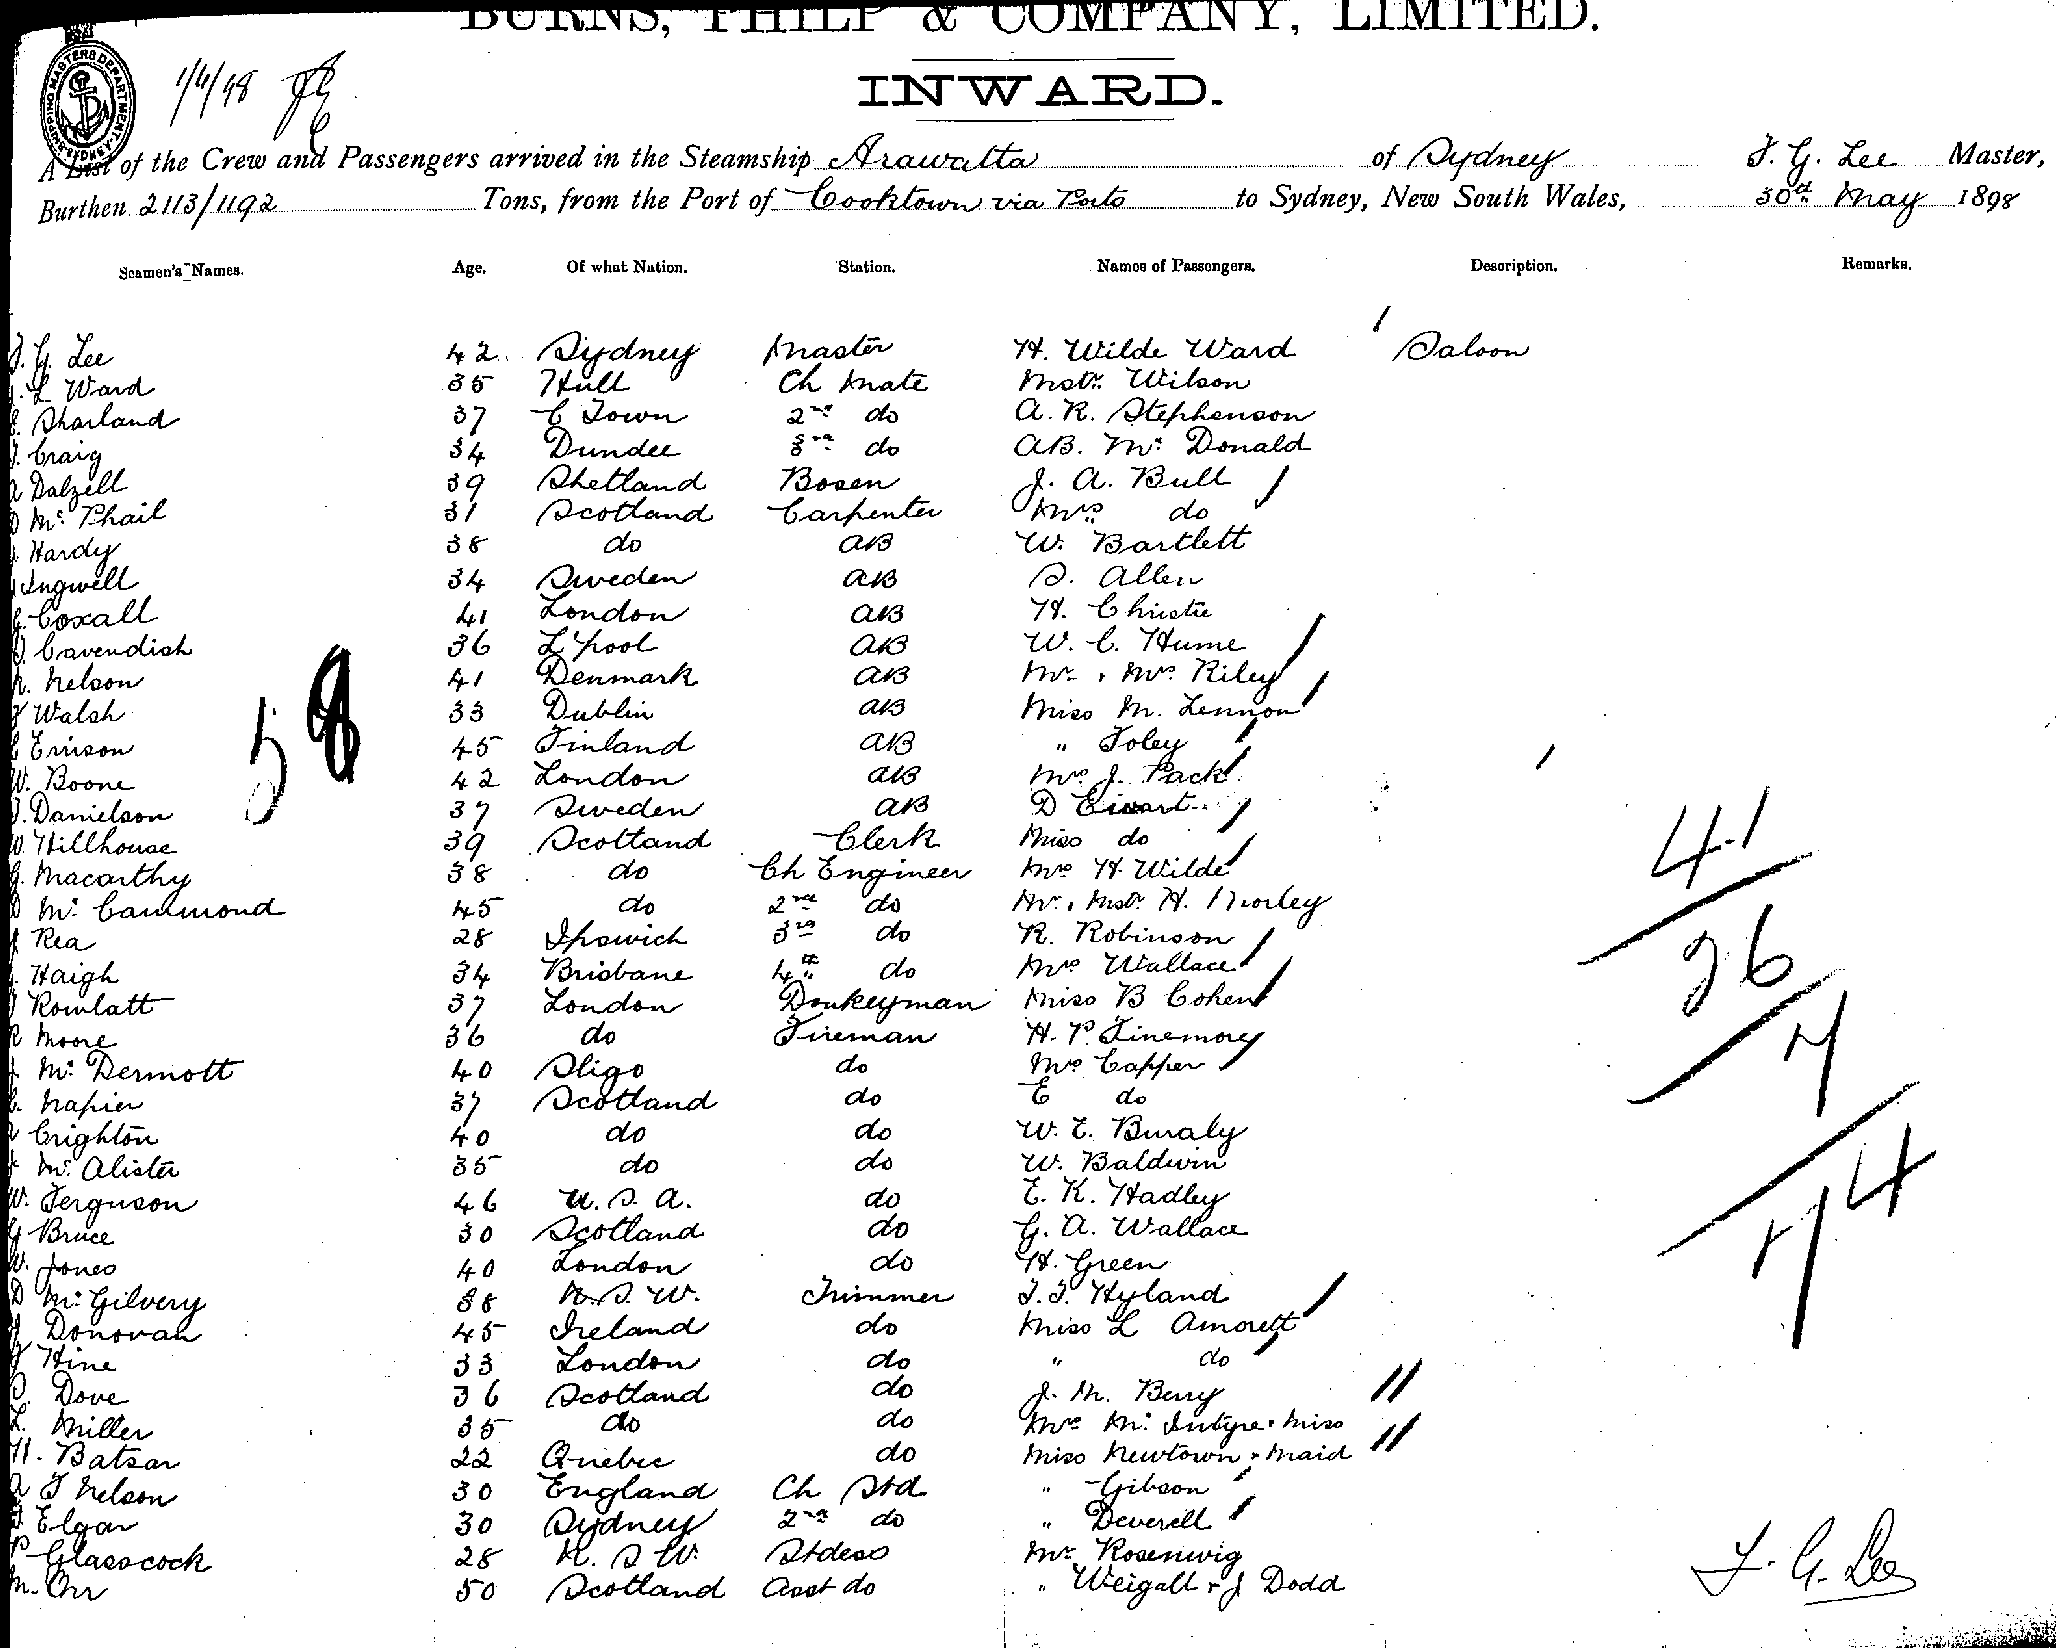 BURNS, PHILP & COMPANY, LIMITED.
INWARD.
SHIPPING MASTERS DEPARTMENT SYDNEY
1/6/98
A List of the Crew and Passengers arrived in the Steamship Arawatta of Sydney F. G. Lee Master,
Burthen 2113/1192 Tons, from the Port of Cooktown via Ports to Sydney, New South Wales, 30th May 1898
Seamen's Names. Age. Of what Nation. Station. Names of Passengers. Description. Remarks.
F. G. Lee 42 Sydney Master H. Wilde Ward Saloon
L Ward 35 Hull Ch Mate Mstr. Wilson
E. Sharland 37 C Town 2nd do A. R. Stephenson
J. Craig 34 Dundee 3rd do AB. Mc Donald
A Dalzell 39 Shetland Bosen J. A. Bull
D Mc Phail 31 Scotland Carpenter Mrs do
Hardy 38 do AB W. Bartlett
Ingwell 34 Sweden AB S. Allen
Coxall 41 London AB H. Christie
Cavendish 36 L'pool AB W. C. Hume
Nelson 41 Denmark AB Mr. & Mrs Riley
Walsh 33 Dublin AB Miss M. Lennon
Erison 45 Finland AB " Foley
W. Boone 42 London AB Mrs J. Pack
Danielson 37 Sweden AB D Ewart
W. Hillhouse 39 Scotland Clerk Miss do
G. Macarthy 38 do Ch Engineer Mrs H. Wilde
D Mc Cammond 45 do 2nd do Mr. & Mstr. H. Morley
Rea 28 Ipswich 3rd do R. Robinson
Haigh 34 Brisbane 4th do Mrs Wallace
Rowlatt 37 London Donkeyman Miss B Cohen
R Moore 36 do Fireman H. P. Finemore
Mc Dermott 40 Sligo do Mrs Capper
Napier 37 Scotland do E do
Crighton 40 do do W. E. Buraly
Mc Alister 35 do do W. Baldwin
W. Ferguson 46 U. S. A. do E. K. Hadley
G Bruce 30 Scotland do G. A. Wallace
W. Jones 40 London do H. Green
D Mc Gilvery 38 N. S. W. Trimmer T. J. Hyland
Donovan 45 Ireland do Miss L Amorett
Hine 33 London do " do
Dove 36 Scotland do J. M. Berry
Miller 35 do do Mrs Mc Intyre & Miss
H. Batsar 22 Quebec do Miss Newtown & Maid
A J Nelson 30 England Ch Std " Gibson
Elgar 30 Sydney 2nd do " Deverell
Glasscock 28 N. S W. Stdess Mr. Rosenwig
M. Orr 50 Scotland Asst do " Weigall & J Dodd
41
26
7
74
F. G. Lee